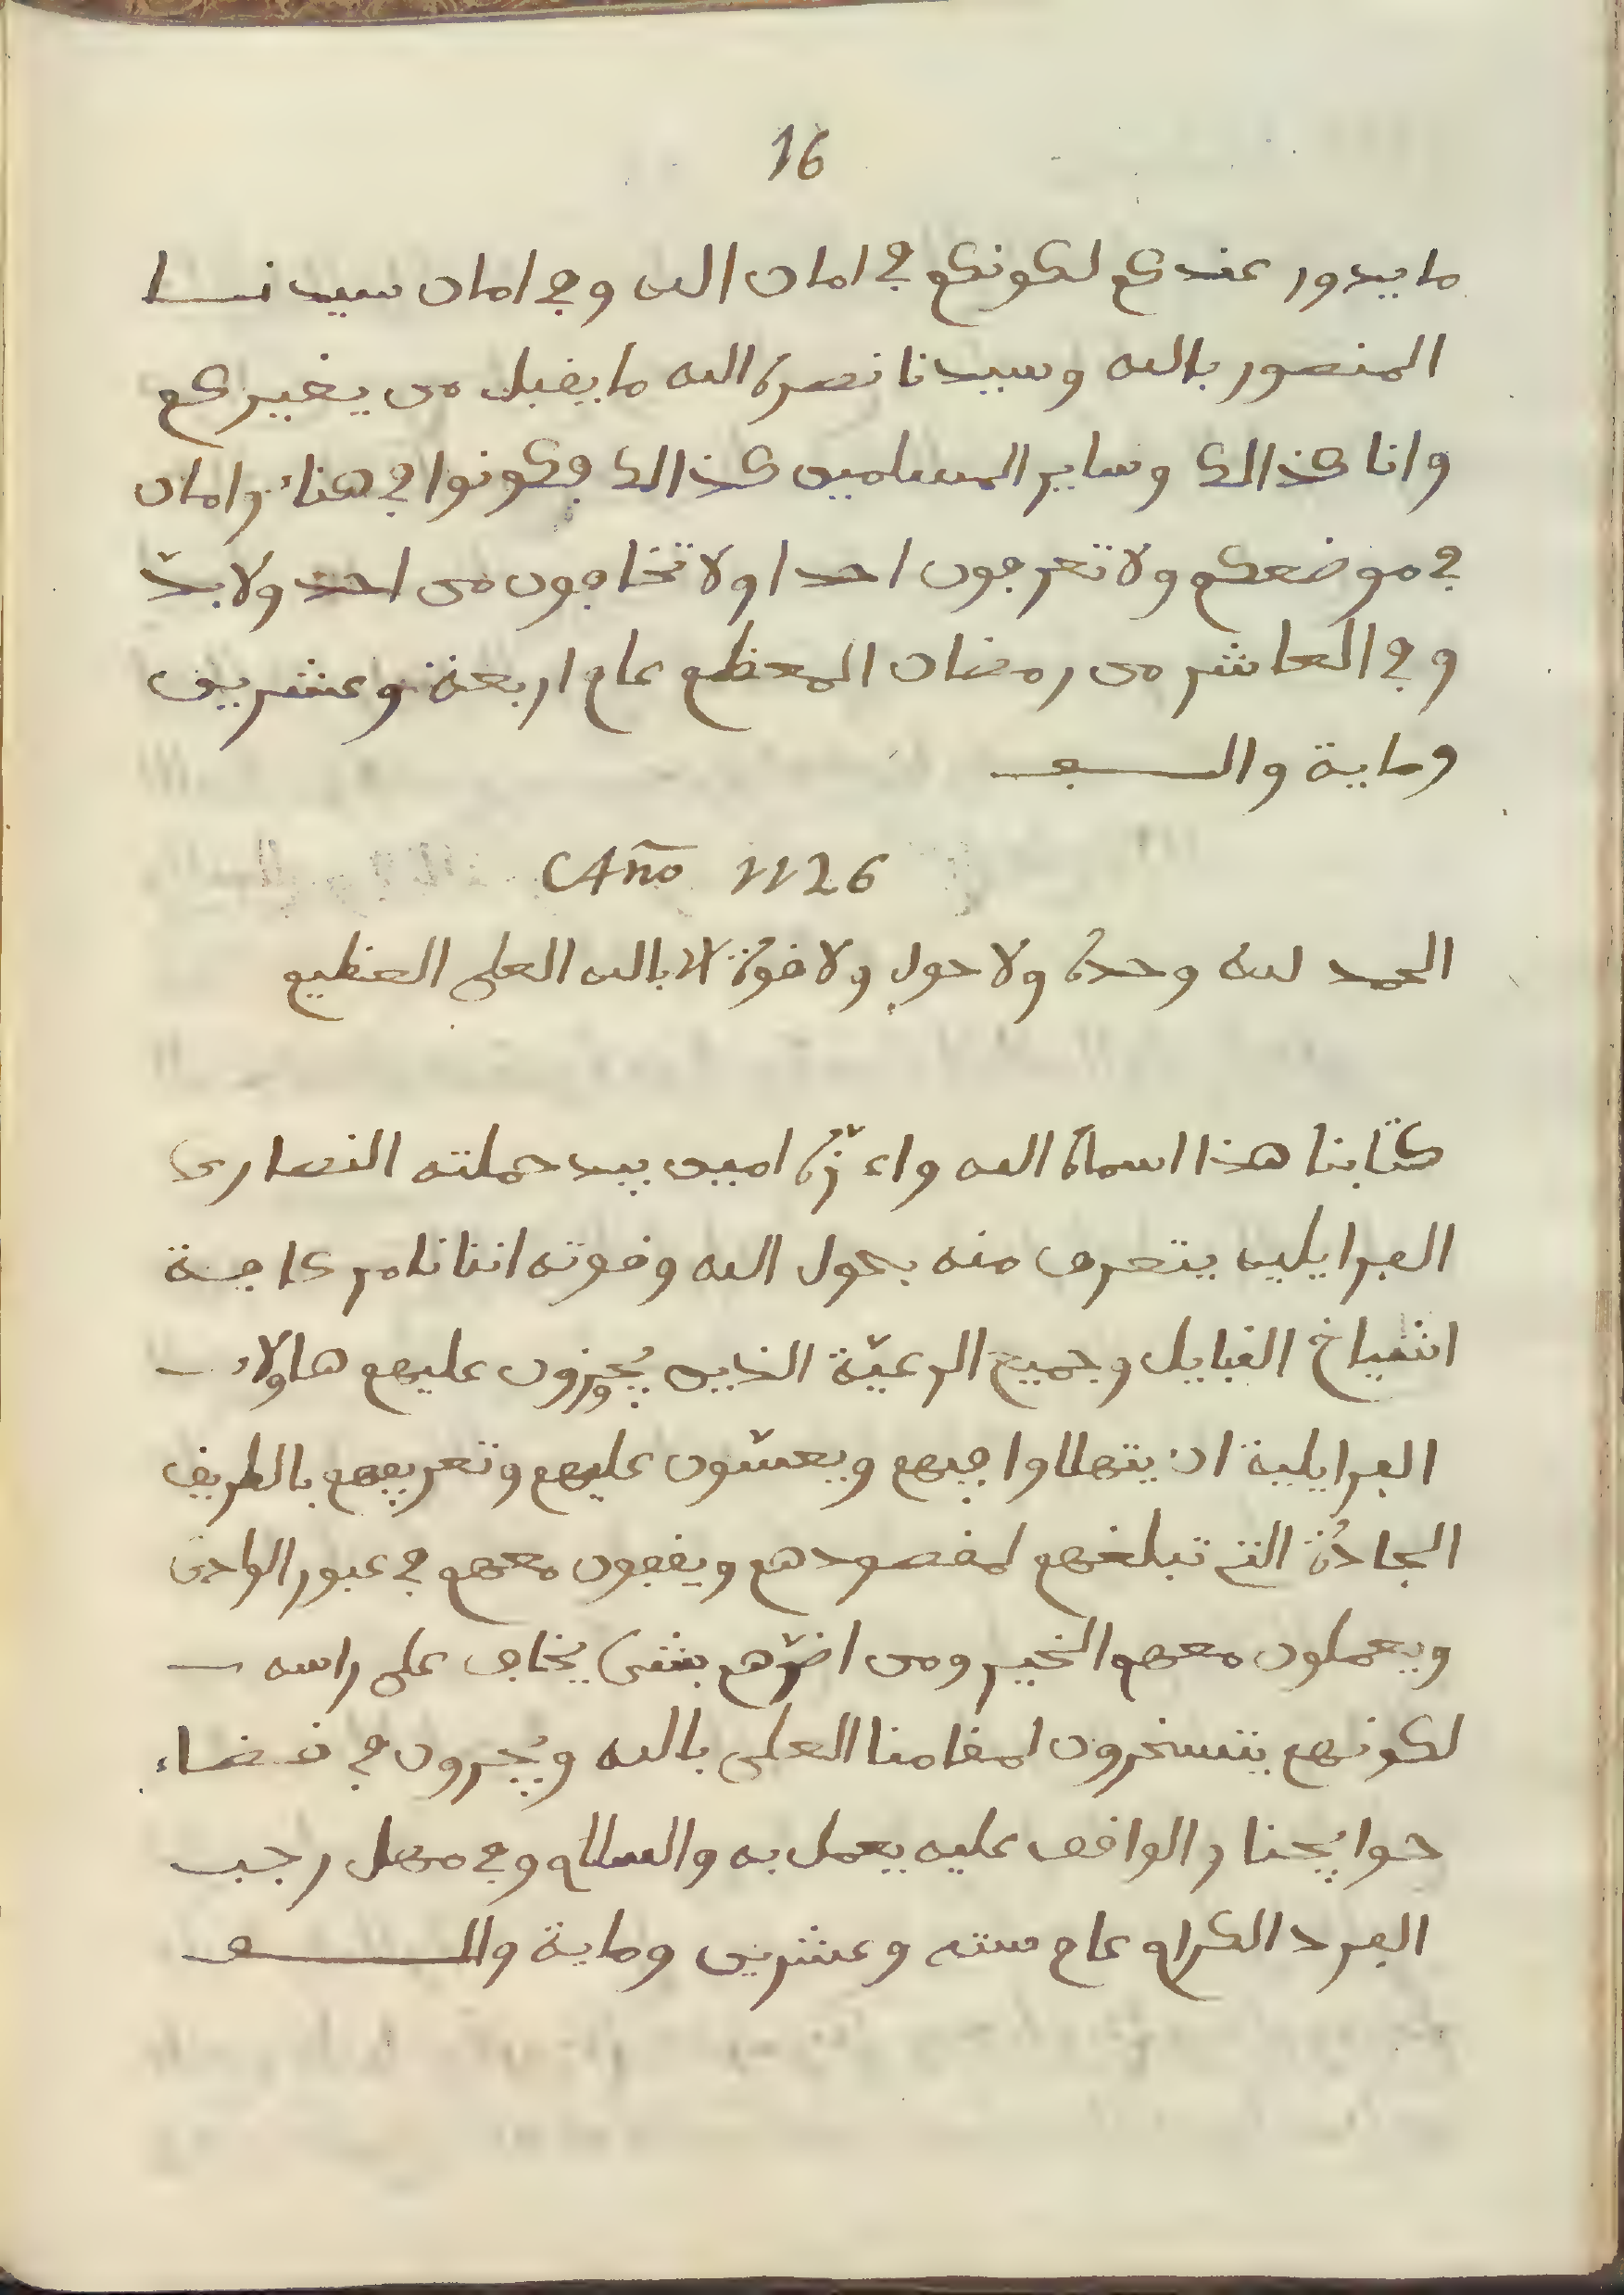 16
ما يدور عندكم لكونكم في امان الله وفي امان سيدنا
المنصور بالله وسيدنا نصره الله ما يقبل من يغيركم
وانا كذالك وساير المسلمين كذالك فكونوا في هناء وامان
في موضعكم ولا تعرفون احدا ولا تخافون من احد ولا بدّ
وفي العاشر من رمضان المعظم عام اربعة وعشرين
وماية والف
Año 1126
الحمد لله وحده ولا حول ولا قوة الا بالله العلى العظيم
كتابنا هذا اسماه الله واعزّه امين بيد حملته النصارى
الفرايليه يتعرف منه بحول الله وقوته اننا نامر كافة
اشياخ القبايل وجميع الرعيّة الذين يجوزون عليهم هاولاء
الفرايلية ان يتهلاوا فيهم ويعسّون عليهم وتعريفهم بالطريق
الجادة التى تبلغهم لمقصودهم ويقفون معهم في عبور الوادى
ويعملون معهم الخير ومن اضرّهم بشىء يخاف على راسه
لكونهم يتسخرون لمقامنا العلى بالله ويجرون في قضاء
حوايجنا والواقف عليه يعمل به والسلام وفي مهل رجب
الفرد الكرام عام سته وعشرين وماية والف